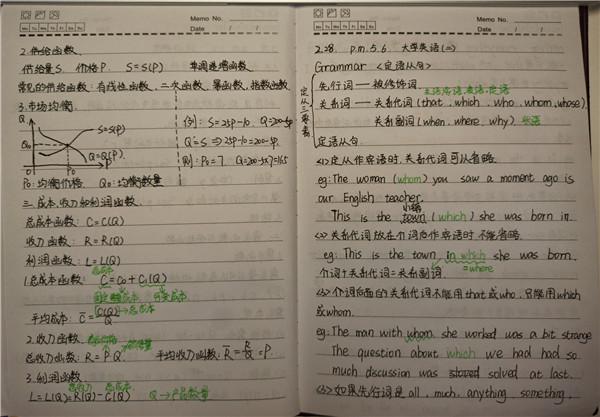 Memo No.
Mo Tu We Th Fr Sa Su
Date / /
2.供给函数
供给量S. 价格P. S=S(P) 单调递增函数
常见的供给函数:有线性函数,二次函数,幂函数,指数函数
3.市场均衡.
Q
S=S(P)
Q₀
Q=Q(P)
0 P₀ P
例: S=25P-10. Q=200-5P
Q=S ⇒ 25P-10=200-5P.
则: P₀=7 Q=200-5×7=165
P₀:均衡价格 Q₀:均衡数量
三.成本,收入和利润函数
总成本函数: C=C(Q)
收入函数: R=R(Q)
利润函数: L=L(Q)
总成本
1.总成本函数: C=C₀+C₁(Q)
固定成本 可变成本
平均成本: C̄=C(Q)/Q →总成本
2.收入函数
总收入函数: R=P·Q 平均收入函数: R̄=R/Q=P.
3.利润函数
总收入 总成本
L=L(Q)=R(Q)-C(Q) Q→产品数量
Memo No.
Mo Tu We Th Fr Sa Su
Date / /
2.28. p.m.5.6. 大学英语(二)
Grammar <定语从句>
定从三要素
先行词——被修饰词
主语,宾语,表语,定语
关系词——关系代词(that, which, who, whom, whose)
关系副词(when, where, why) 状语
定语从句.
<1>定从作宾语时,关系代词可以省略.
eg: The woman (whom) you saw a moment ago is
our English teacher.
This is the town (which) she was born in.
<2>关系代词放在介词后作宾语时不能省略.
eg: This is the town, in which she was born.
介词+关系代词=关系副词 =where
<3>介词后面的关系代词不能用that或who,只能用which
或whom.
eg: The man with whom she worked was a bit strange
The question about which we had had so
much discussion was solved at last.
如果先行词是all, much, anything, something,